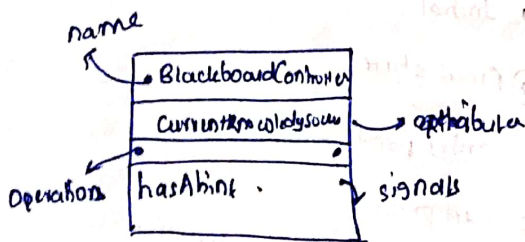 name
BlackboardController
CurrentKnowledgeSource
attributes
Operations
hasAhint.
signals